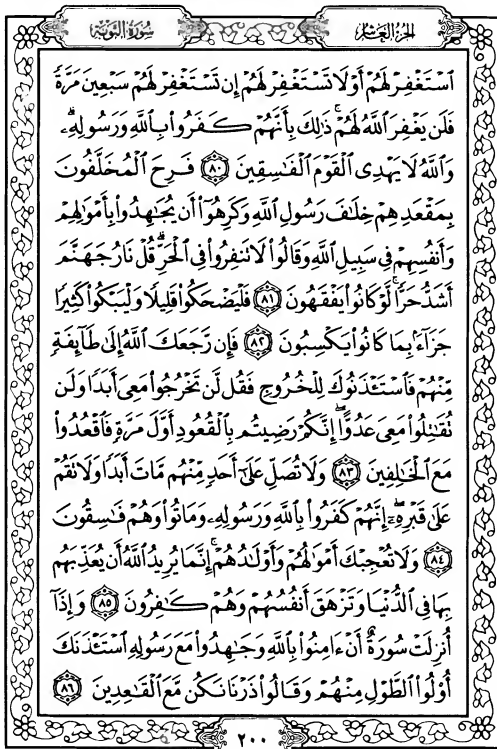 سُورَةُ التَّوْبَةِ
الجُزْءُ العَاشِرُ
ٱسْتَغْفِرْ لَهُمْ أَوْ لَا تَسْتَغْفِرْ لَهُمْ إِن تَسْتَغْفِرْ لَهُمْ سَبْعِينَ مَرَّةً
فَلَن يَغْفِرَ ٱللَّهُ لَهُمْ ۚ ذَٰلِكَ بِأَنَّهُمْ كَفَرُوا۟ بِٱللَّهِ وَرَسُولِهِۦ ۗ
وَٱللَّهُ لَا يَهْدِى ٱلْقَوْمَ ٱلْفَٰسِقِينَ ﴿٨٠﴾ فَرِحَ ٱلْمُخَلَّفُونَ
بِمَقْعَدِهِمْ خِلَٰفَ رَسُولِ ٱللَّهِ وَكَرِهُوٓا۟ أَن يُجَٰهِدُوا۟ بِأَمْوَٰلِهِمْ
وَأَنفُسِهِمْ فِى سَبِيلِ ٱللَّهِ وَقَالُوا۟ لَا تَنفِرُوا۟ فِى ٱلْحَرِّ ۗ قُلْ نَارُ جَهَنَّمَ
أَشَدُّ حَرًّا ۚ لَّوْ كَانُوا۟ يَفْقَهُونَ ﴿٨١﴾ فَلْيَضْحَكُوا۟ قَلِيلًا وَلْيَبْكُوا۟ كَثِيرًا
جَزَآءًۢ بِمَا كَانُوا۟ يَكْسِبُونَ ﴿٨٢﴾ فَإِن رَّجَعَكَ ٱللَّهُ إِلَىٰ طَآئِفَةٍ
مِّنْهُمْ فَٱسْتَـْٔذَنُوكَ لِلْخُرُوجِ فَقُل لَّن تَخْرُجُوا۟ مَعِىَ أَبَدًا وَلَن
تُقَٰتِلُوا۟ مَعِىَ عَدُوًّا ۖ إِنَّكُمْ رَضِيتُم بِٱلْقُعُودِ أَوَّلَ مَرَّةٍ فَٱقْعُدُوا۟
مَعَ ٱلْخَٰلِفِينَ ﴿٨٣﴾ وَلَا تُصَلِّ عَلَىٰٓ أَحَدٍ مِّنْهُم مَّاتَ أَبَدًا وَلَا تَقُمْ
عَلَىٰ قَبْرِهِۦٓ ۖ إِنَّهُمْ كَفَرُوا۟ بِٱللَّهِ وَرَسُولِهِۦ وَمَاتُوا۟ وَهُمْ فَٰسِقُونَ
﴿٨٤﴾ وَلَا تُعْجِبْكَ أَمْوَٰلُهُمْ وَأَوْلَٰدُهُمْ ۚ إِنَّمَا يُرِيدُ ٱللَّهُ أَن يُعَذِّبَهُم
بِهَا فِى ٱلدُّنْيَا وَتَزْهَقَ أَنفُسُهُمْ وَهُمْ كَٰفِرُونَ ﴿٨٥﴾ وَإِذَآ
أُنزِلَتْ سُورَةٌ أَنْ ءَامِنُوا۟ بِٱللَّهِ وَجَٰهِدُوا۟ مَعَ رَسُولِهِ ٱسْتَـْٔذَنَكَ
أُو۟لُوا۟ ٱلطَّوْلِ مِنْهُمْ وَقَالُوا۟ ذَرْنَا نَكُن مَّعَ ٱلْقَٰعِدِينَ ﴿٨٦﴾
٢٠٠